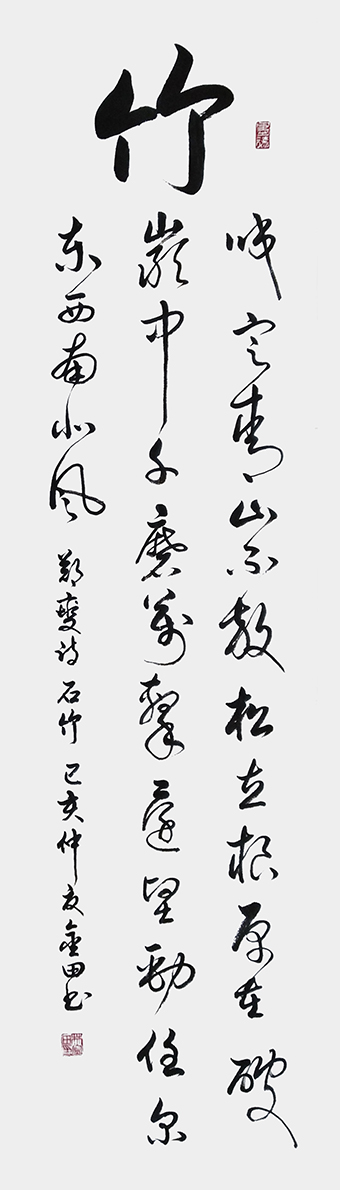 竹
咬定青山不放松立根原在破
巖中千磨萬擊還堅勁任尔
东西南北风 鄭燮诗 石竹 己亥仲夏金田书